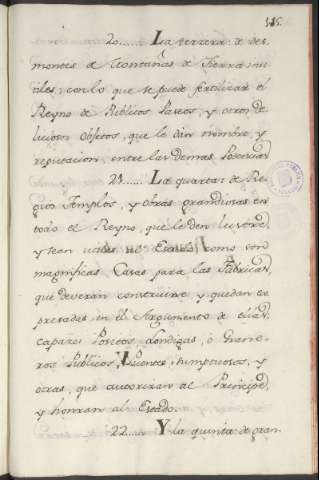 20...... La terzera de des
montes de Montañas de Tierra inu
tiles, con lo que se puede fertilizar el
Reyno de Publicos Paseos, y otros de
liciosos Objetos, que le dan nombre, y
reputacion, entre las demas
21...... La quarta: de Re
gios Templos, y obras grandiosas en
todo el Reyno, que le den lustre,
y sean utiles al Estado, como son
magnificas Casas para las Fabricas,
que deveran construirse y quedan ex
presadas en el Argumento de ellas,
capazes Positos, Londigas, ò Grene
ros Publicos, Puentes sumptuosos, y
otras, que autorizan al Principe,
y honran al Estado.
22...... Y la quinta de gran